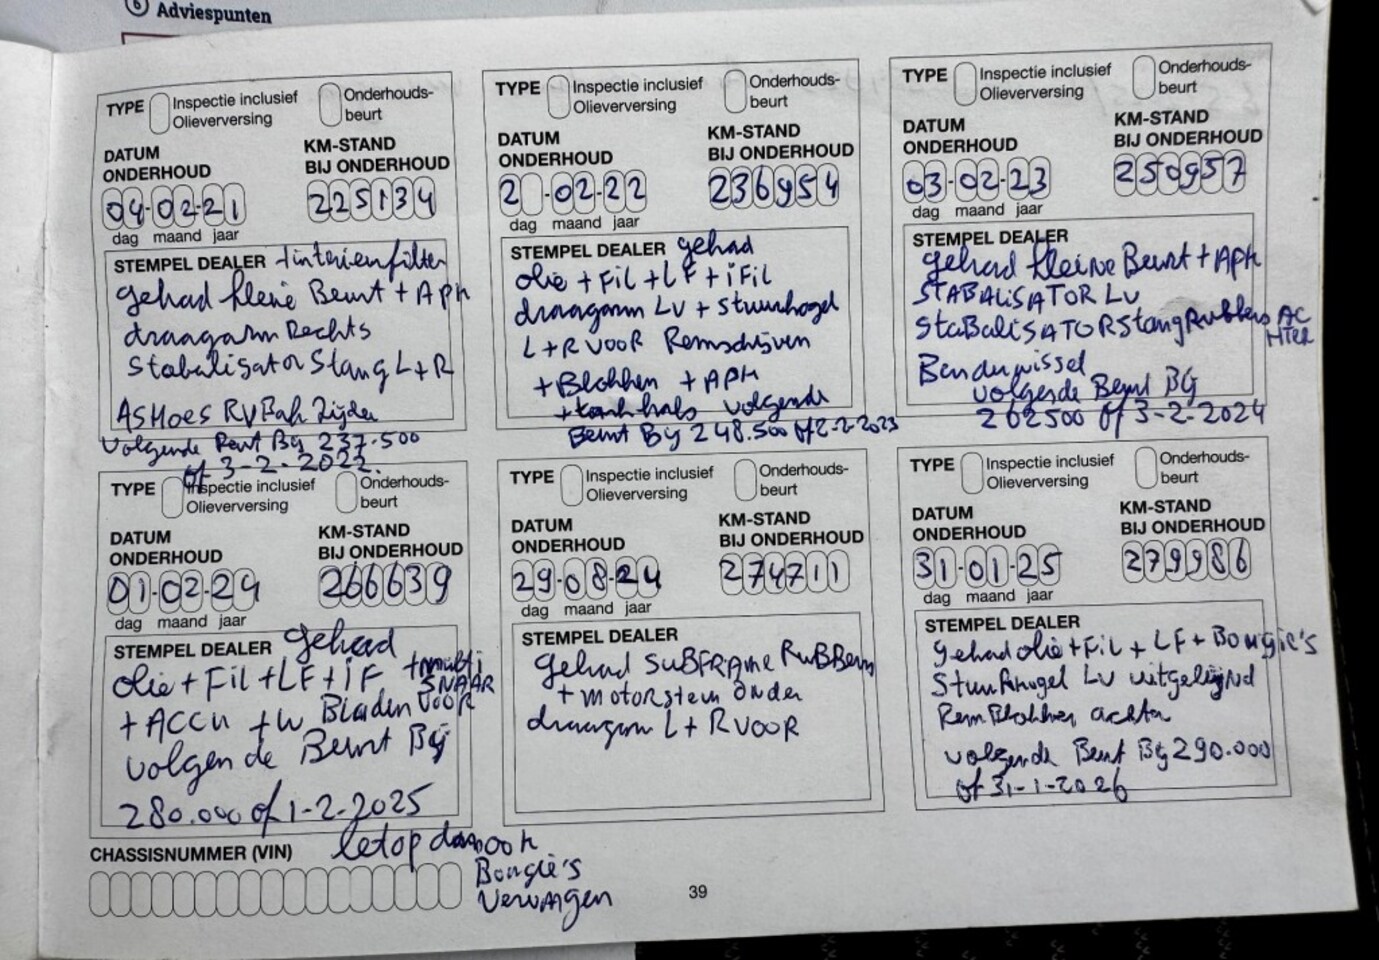 6 Adviespunten
TYPE Inspectie inclusief Olieverversing Onderhouds-beurt
DATUM ONDERHOUD
KM-STAND BIJ ONDERHOUD
04-02-21
225134
dag maand jaar
STEMPEL DEALER + interieurfilter
gehad kleine Beurt + APK
draagarm Rechts
Stabalisator Stang L+R
ASHoes RV Bak Zijde
Volgende Beurt Bij 237.500
of 3-2-2022.
TYPE Inspectie inclusief Olieverversing Onderhouds-beurt
DATUM ONDERHOUD
KM-STAND BIJ ONDERHOUD
2 -02-22
236954
dag maand jaar
STEMPEL DEALER gehad
olie + Fil + LF + iFil
draagarm LV + Stuurkogel
L+R VOOR Remschijven
+ Blokken + APK
+ tankhals volgende
Beurt Bij 248.500 of 2-2-2023
TYPE Inspectie inclusief Olieverversing Onderhouds-beurt
DATUM ONDERHOUD
KM-STAND BIJ ONDERHOUD
03-02-23
250957
dag maand jaar
STEMPEL DEALER
gehad kleine Beurt + APK
STABALiSATOR LV
StaBaliSATOR Stang Rubbers ACHTER
Bandenwissel
volgende Beurt Bij
262500 of 3-2-2024
TYPE Inspectie inclusief Olieverversing Onderhouds-beurt
DATUM ONDERHOUD
KM-STAND BIJ ONDERHOUD
01-02-24
266639
dag maand jaar
STEMPEL DEALER gehad
olie + Fil + LF + iF + multi SNAAR
+ ACCU + W Bladen VOOR
volgende Beurt Bij
280.000 of 1-2-2025
letop dan ook
Bougie's
Vervangen
TYPE Inspectie inclusief Olieverversing Onderhouds-beurt
DATUM ONDERHOUD
KM-STAND BIJ ONDERHOUD
29-08-24
274711
dag maand jaar
STEMPEL DEALER
gehad SUBFRAME RuBBers
+ motorsteun onder
draagarm L + R VOOR
TYPE Inspectie inclusief Olieverversing Onderhouds-beurt
DATUM ONDERHOUD
KM-STAND BIJ ONDERHOUD
31-01-25
279986
dag maand jaar
STEMPEL DEALER
gehad olie + Fil + LF + Bougie's
Stuurkogel LV uitgelijnd
RemBlokken achter
volgende Beurt Bij 290.000
of 31-1-2026
CHASSISNUMMER (VIN)
39